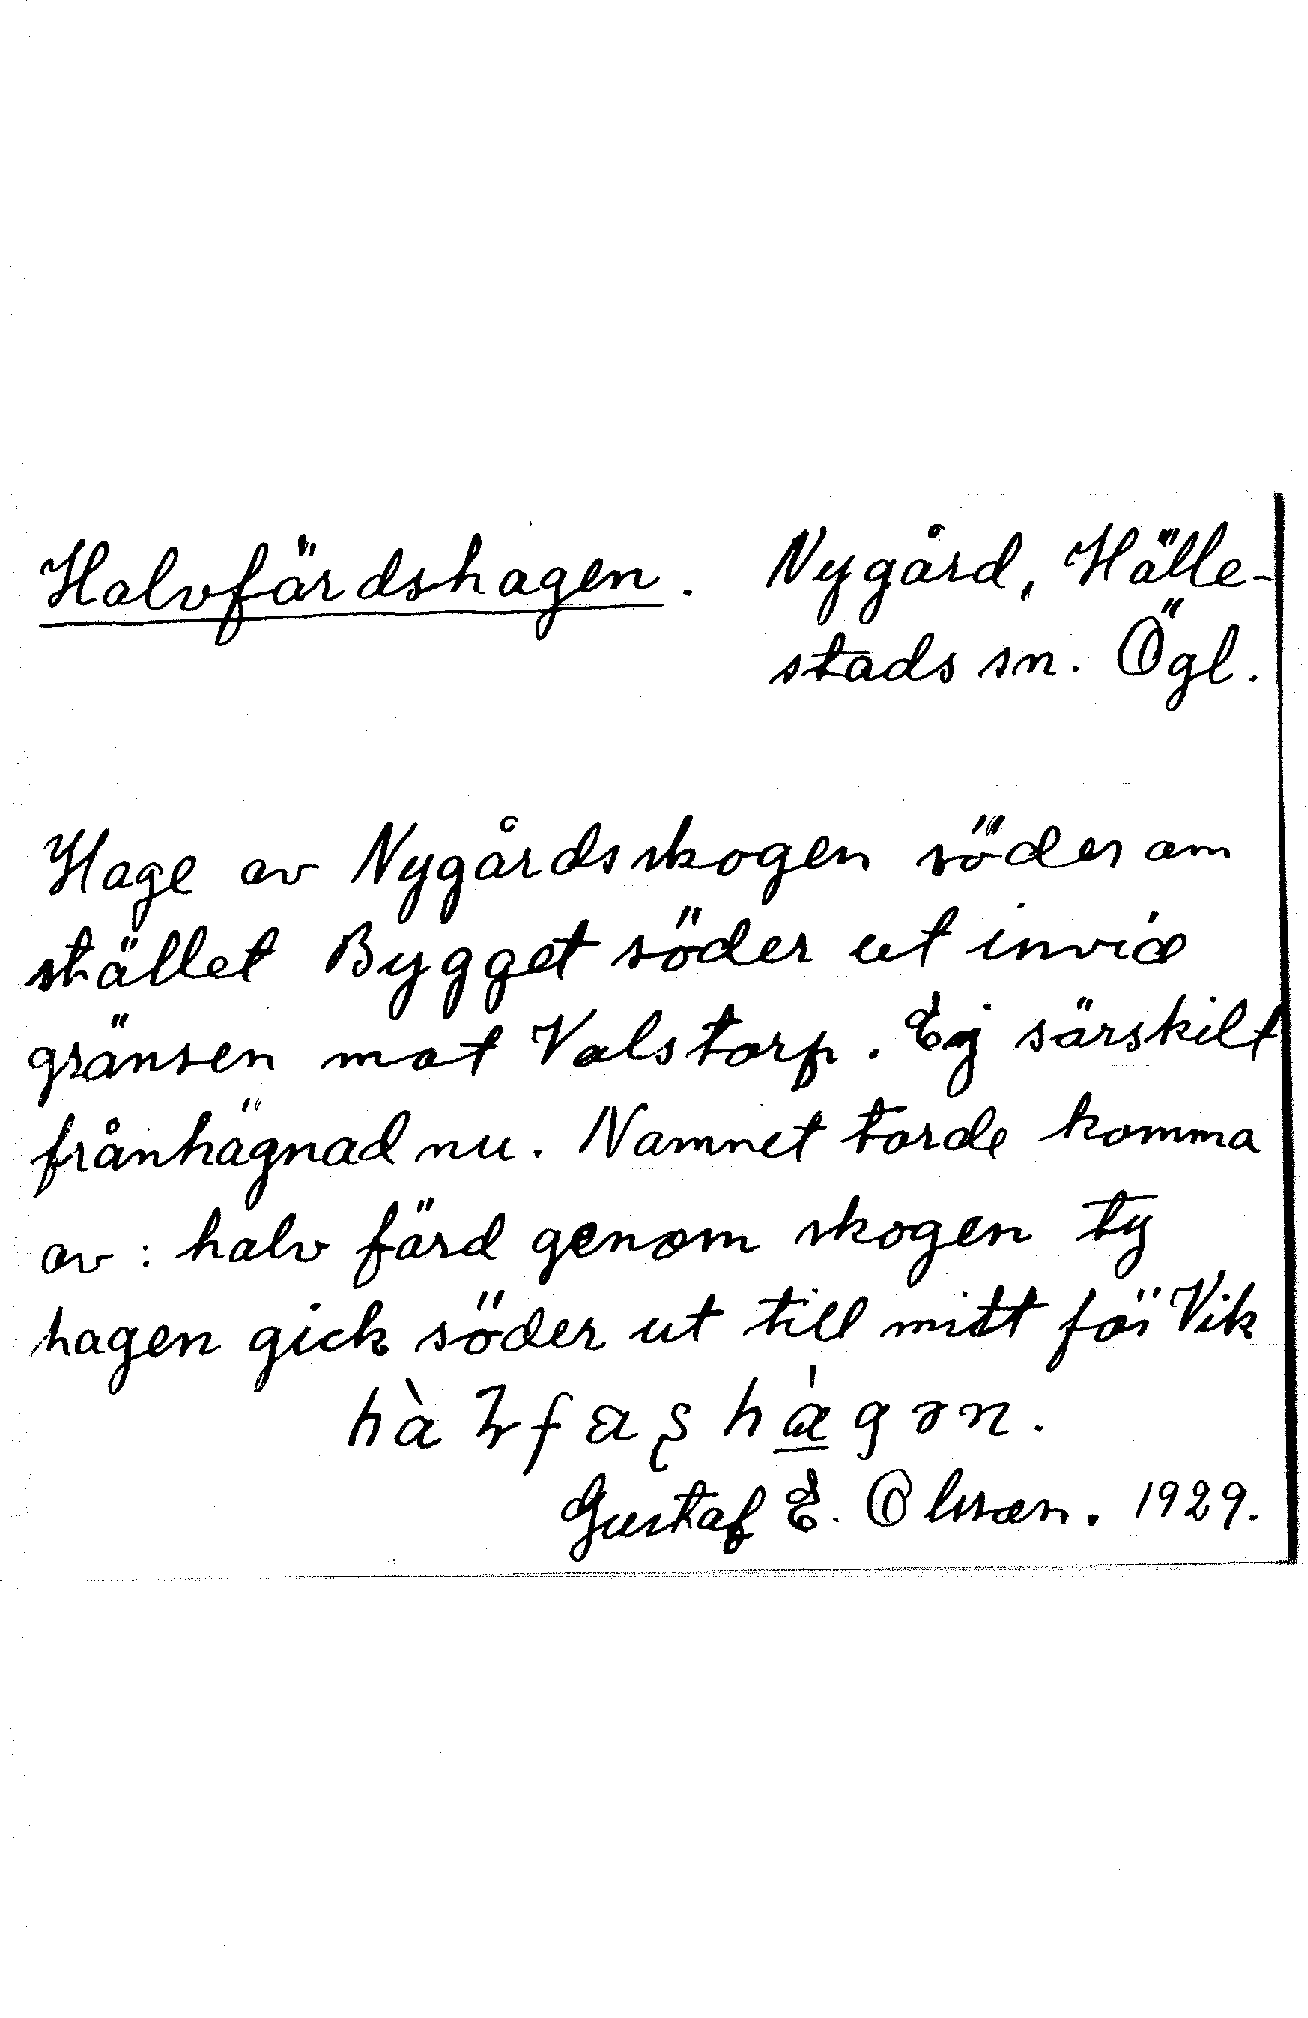 Halvfärdshagen. Nygård, Hälle-
stads sn. Ögl.
Hage av Nygårdsskogen söder om
stället Bygget söder ut invid
gränsen mot Valstorp. Ej särskilt
frånhägnad nu. Namnet torde komma
av: halv färd genom skogen ty
hagen gick söder ut till mitt för Vik
hagən.
Gustaf E. Olsson. 1929.